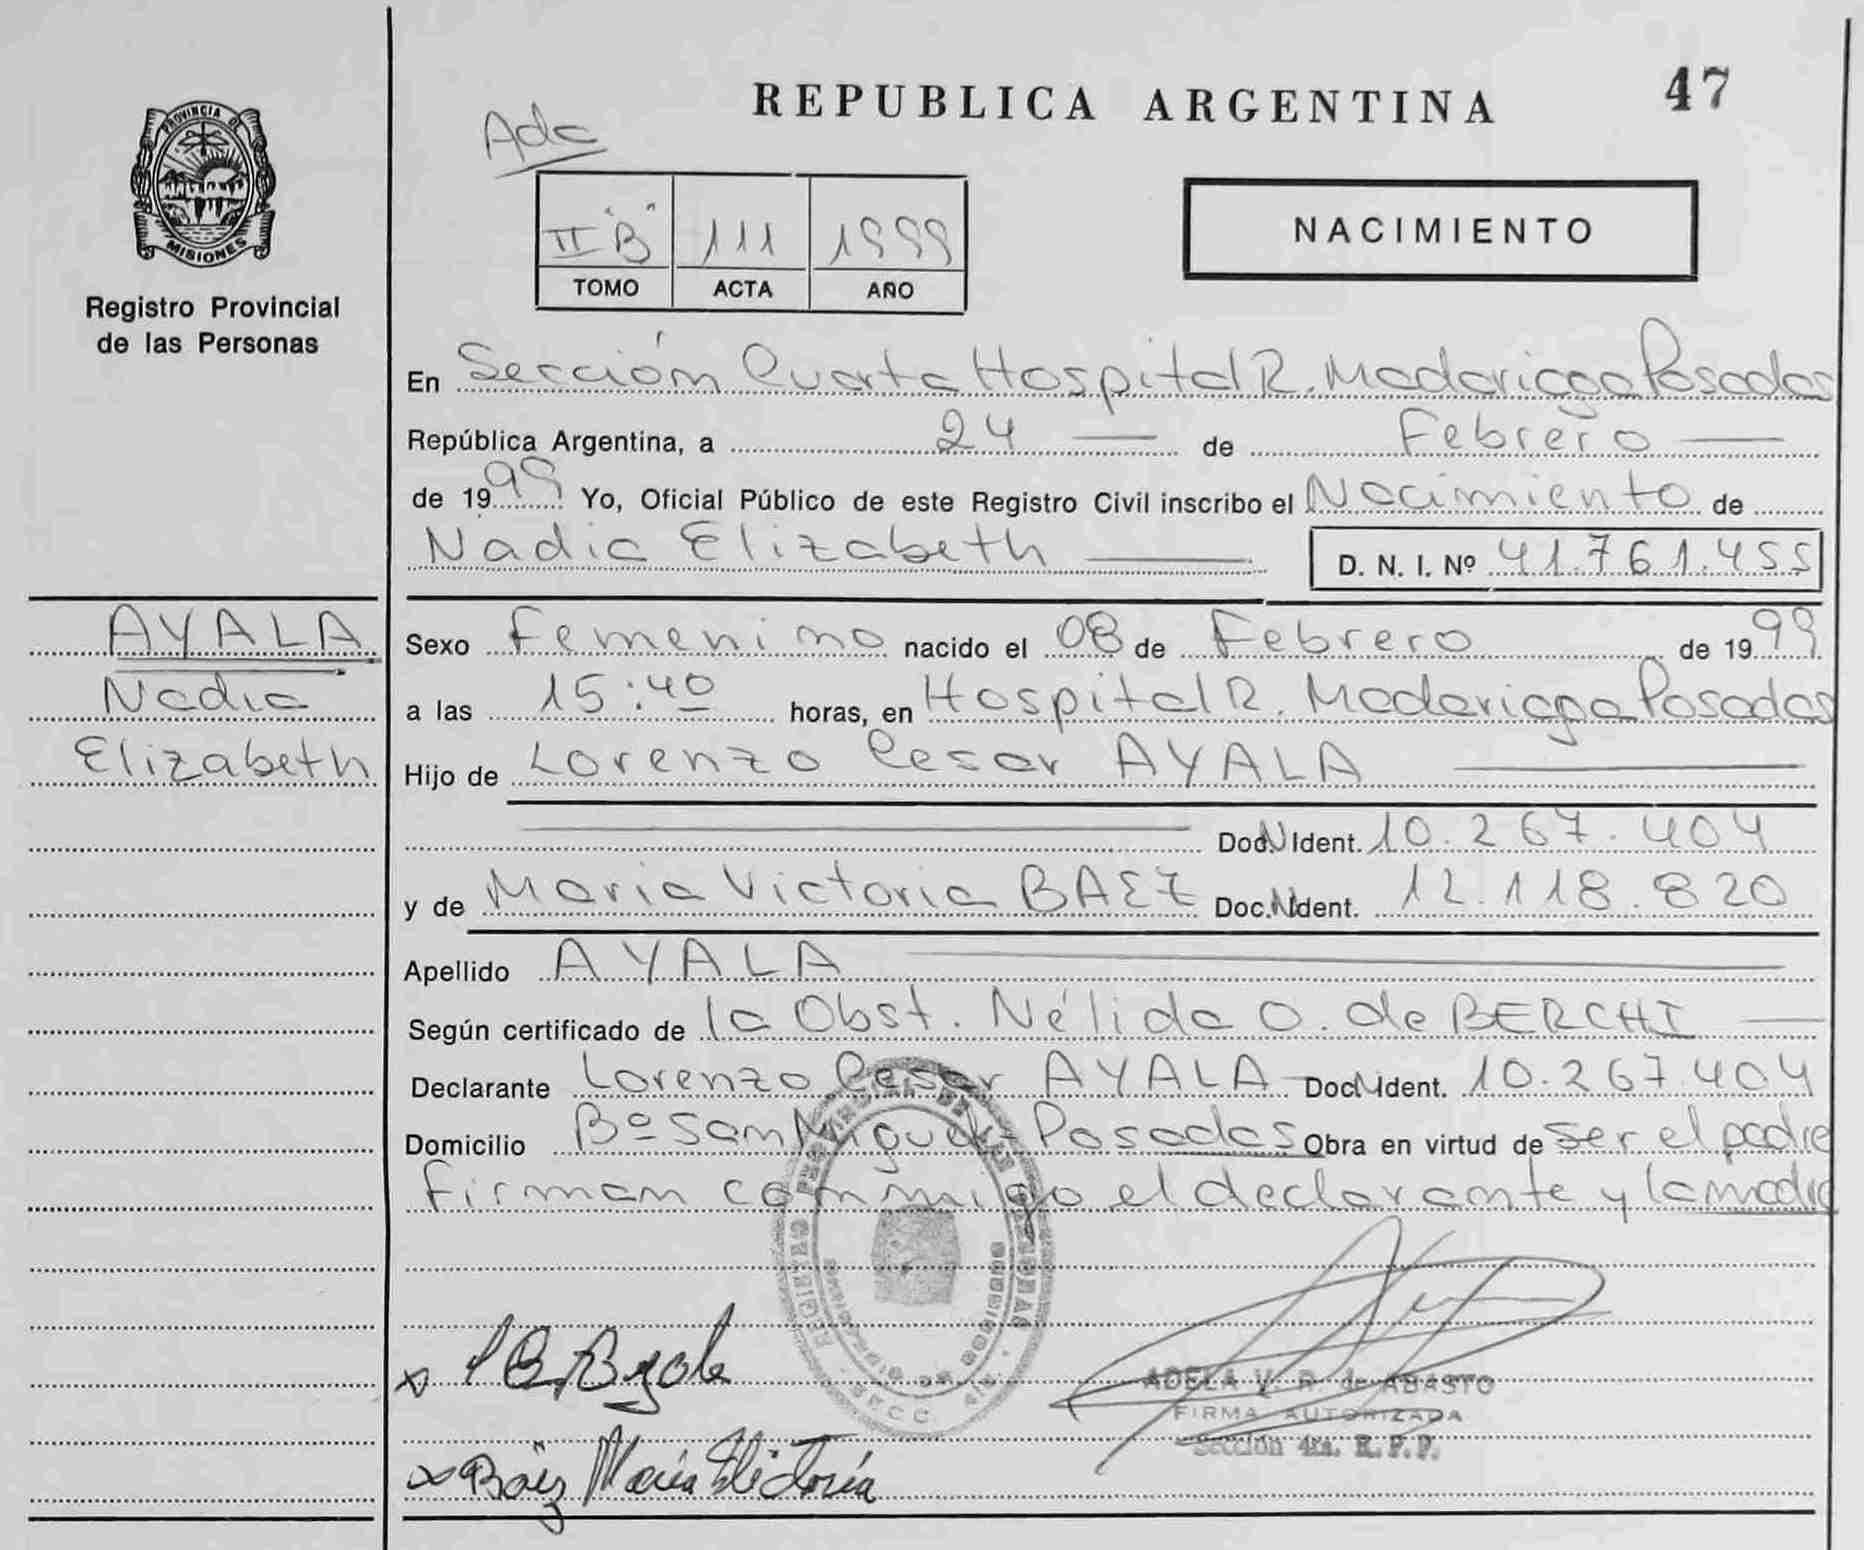 REPUBLICA ARGENTINA
47
PROVINCIA DE
MISIONES
Registro Provincial
de las Personas
II "B" 111 1999
TOMO ACTA AÑO
NACIMIENTO
En Sección Cuarta Hospital R. Madariaga Posadas
República Argentina, a 24 de Febrero
de 1999 Yo, Oficial Público de este Registro Civil inscribo el Nacimiento de
Nadia Elizabeth D. N. I. Nº 41.761.455
AYALA
Nadia
Elizabeth
Sexo Femenino nacido el 08 de Febrero de 1999
a las 15:40 horas, en Hospital R. Madariaga Posadas
Hijo de Lorenzo Cesar AYALA
Doc. N Ident. 10.267.404
y de Maria Victoria BAEZ Doc. N Ident. 12.118.820
Apellido AYALA
Según certificado de la Obst. Nélida O. de BERCHI
Declarante Lorenzo Cesar AYALA Doc. N Ident. 10.267.404
Domicilio Bº San Miguel - Posadas Obra en virtud de ser el padre
Firman conmigo el declarante y la madre
REGISTRO PROVINCIAL DE LAS PERSONAS
SECC. 4ta.
ADELA V. R. de ABASTO
FIRMA AUTORIZADA
Sección 4ta. R. P. P.
x
x Báez María Victoria